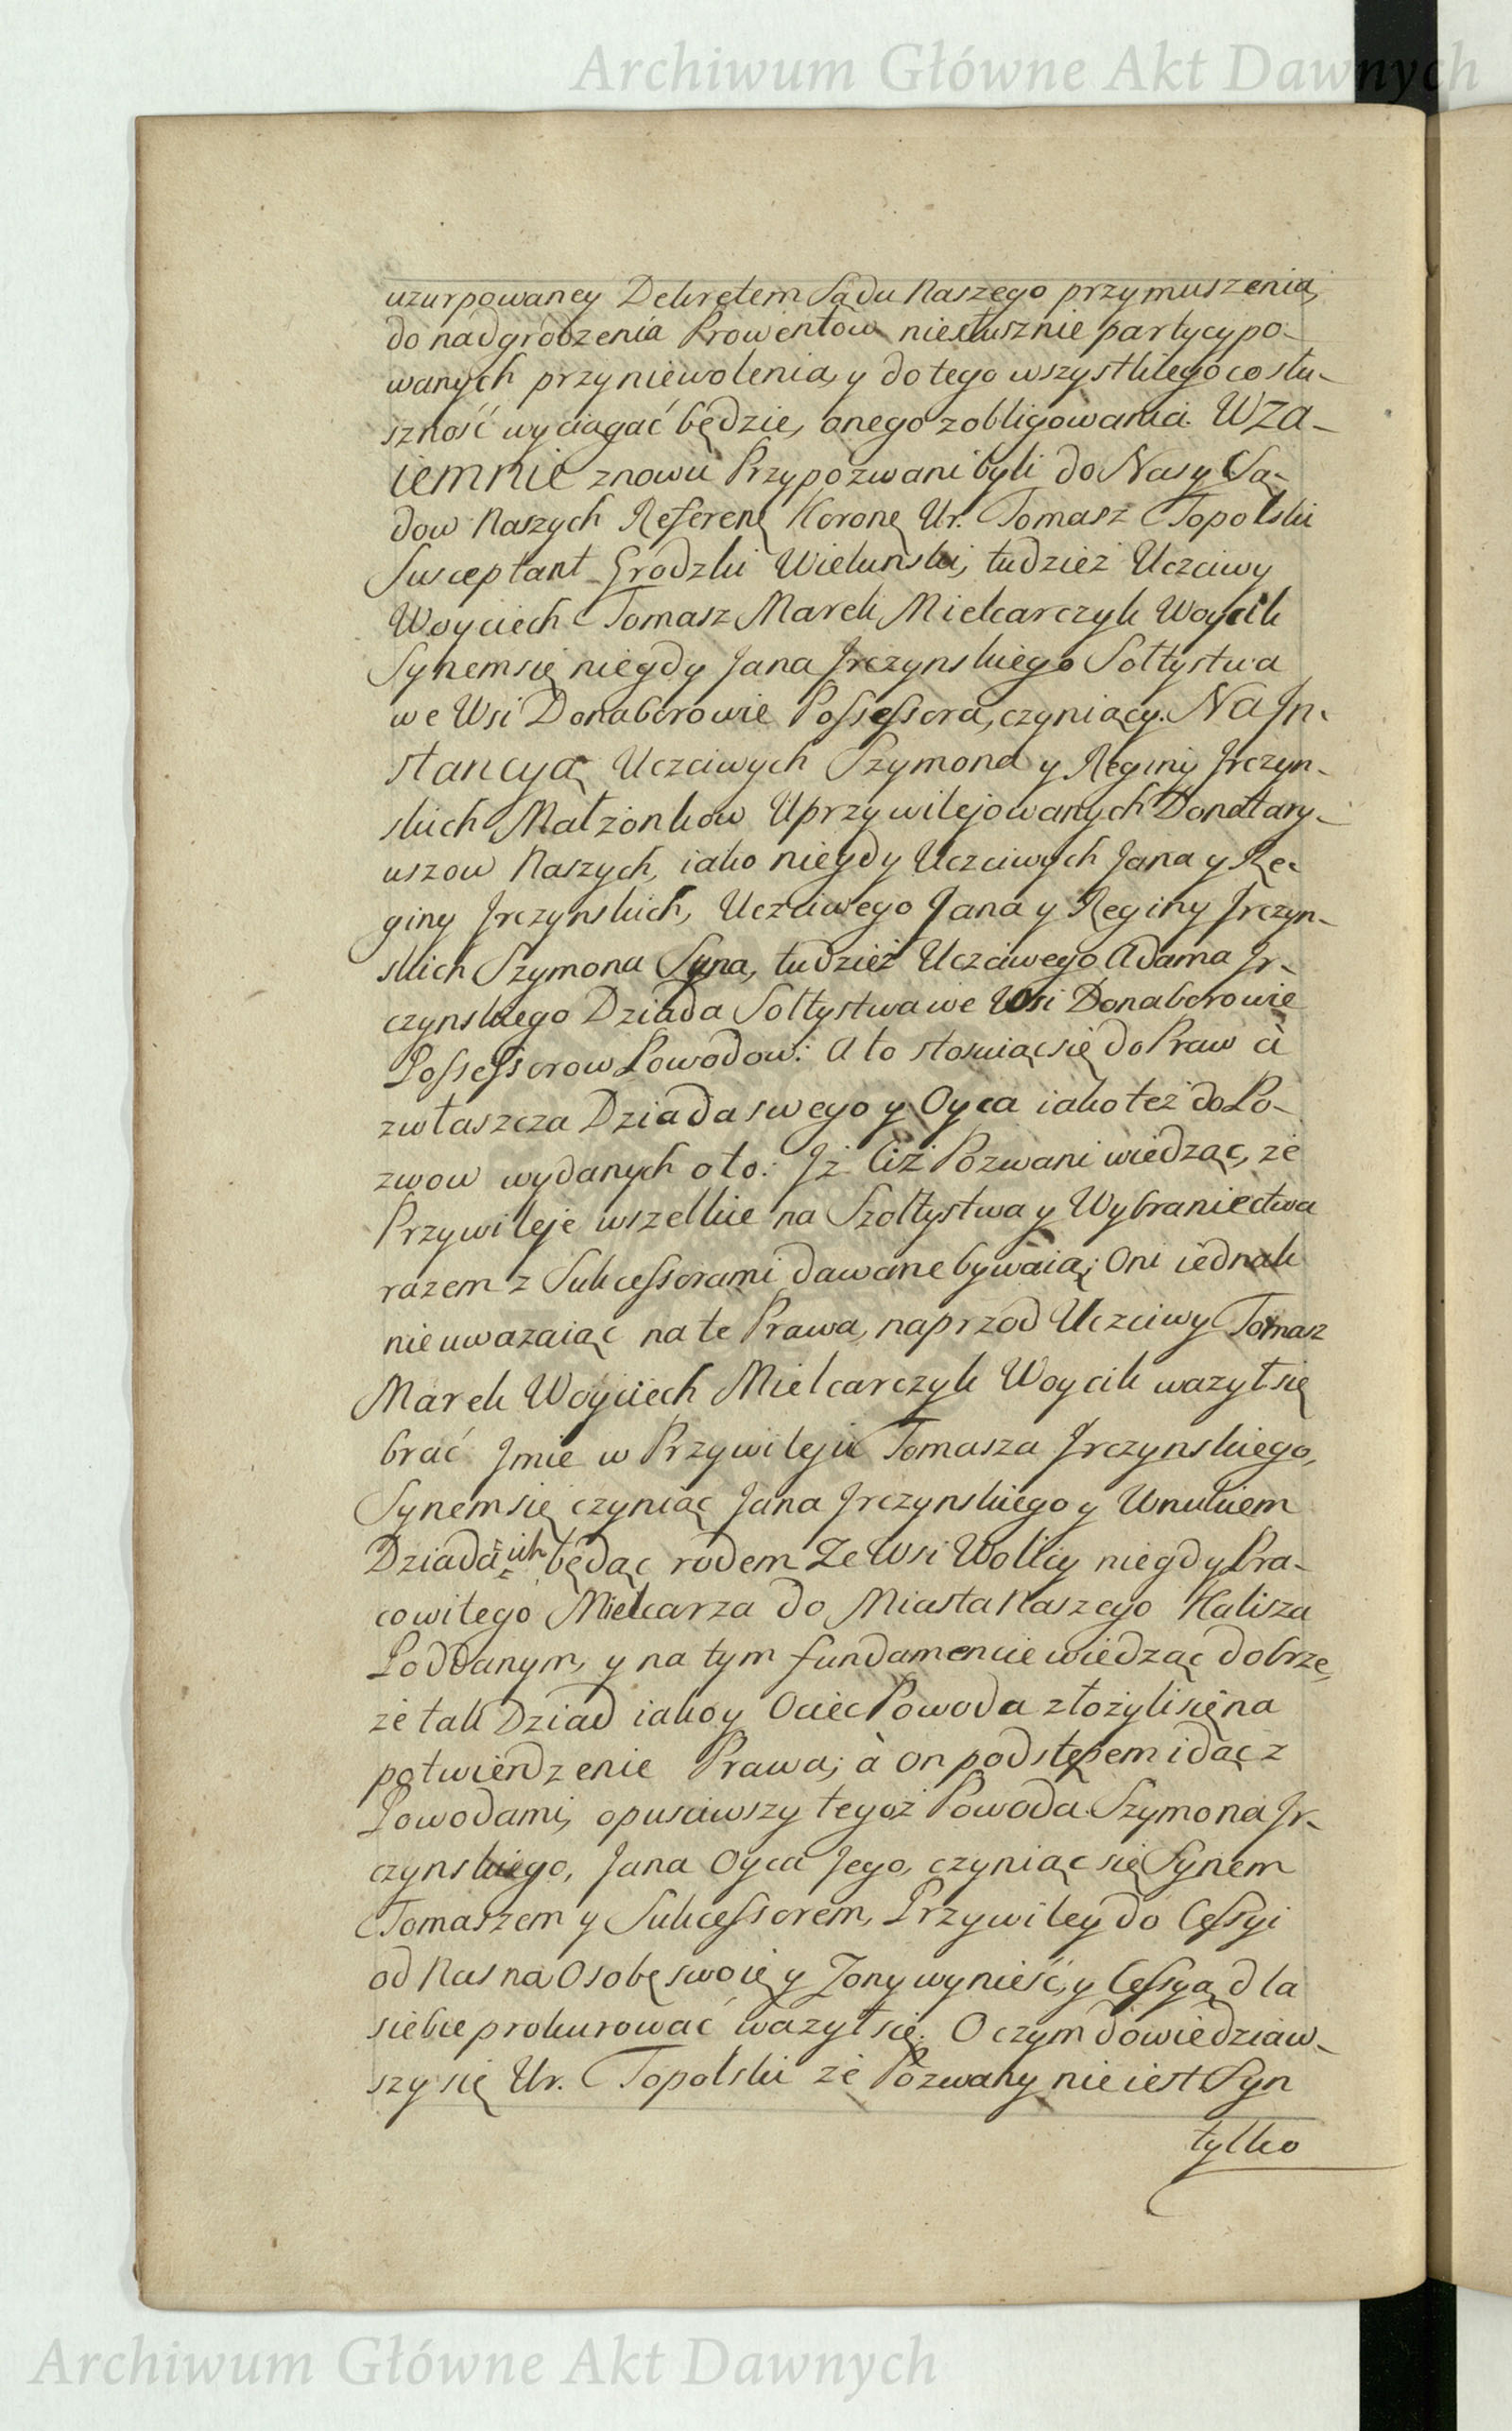 Archiwum Główne Akt Dawnych
uzurpowaney Dekretem Sądu Naszego przymuszenia,
do nadgrodzenia Prowentow niesłusznie partycypo-
wanych przyniewolenia, y do tego wszystkiego co słu-
szność wyciągać będzie, onego zobligowania. Wza-
iemnie znowu Przypozwani byli do Nas y Są-
dow Naszych Referenę Koronę Ur. Tomasz Topolski
Susceptant Grodzki Wielunski, tudzież Uczciwy
Woyciech Tomasz Marek Mielcarczyk Woycik
Synem się niegdy Jana Jrczynskiego Sołtystwa
we Wsi Donaborowie Possessora, czyniący. Na Jn-
stancyą Uczciwych Szymona y Reginy Jrczyn-
skich Małżonkow Uprzywilejowanych Donatary-
uszow Naszych, iako niegdy Uczciwych Jana y Re-
giny Jrczynskich, Uczciwego Jana y Reginy Jrczyn-
skich Szymona Syna, tudzież Uczciwego Adama Jr-
czynskiego Dziada Sołtystwa we Wsi Donaborowie
Possessorow Powodow: A to stosuiąc się do Praw à
zwłaszcza Dziada swego y Oyca iako też do Po-
zwow wydanych o to: Jż Ciż Pozwani wiedząc, że
Przywileje wszelkie na Szołtystwa y Wybraniectwa
razem z Sukcessorami dawane bywaią; Oni iednak
nieuważaiąc na te Prawa, naprzod Uczciwy Tomasz
Marek Woyciech Mielcarczyk Woycik ważył się
brać Jmie w Przywileju Tomasza Jrczynskiego,
Synem się czyniąc Jana Jrczynskiego y Wnukiem
Dziada ich będąc rodem Ze Wsi Wolicy niegdy Pra-
cowitego Mielcarza do Miasta Naszego Kalisza
Poddanym, y na tym fundamencie wiedząc dobrze,
że tak Dziad iako y Ociec Powoda złożyli się na
potwierdzenie Prawa; à on podstępem idąc z
Powodami, opusciwszy tegoż Powoda Szymona Jr-
czynskiego, Jana Oyca Jego, czyniąc się Synem
Tomaszem y Sukcessorem, Przywiley do Cessyi
od Nas na Osobę swoię y Zony wynieść, y Cessyą dla
siebie prokurować ważył się. O czym dowiedziaw-
szy się Ur. Topolski że Pozwany nie iest Syn
tylko
Archiwum Główne Akt Dawnych